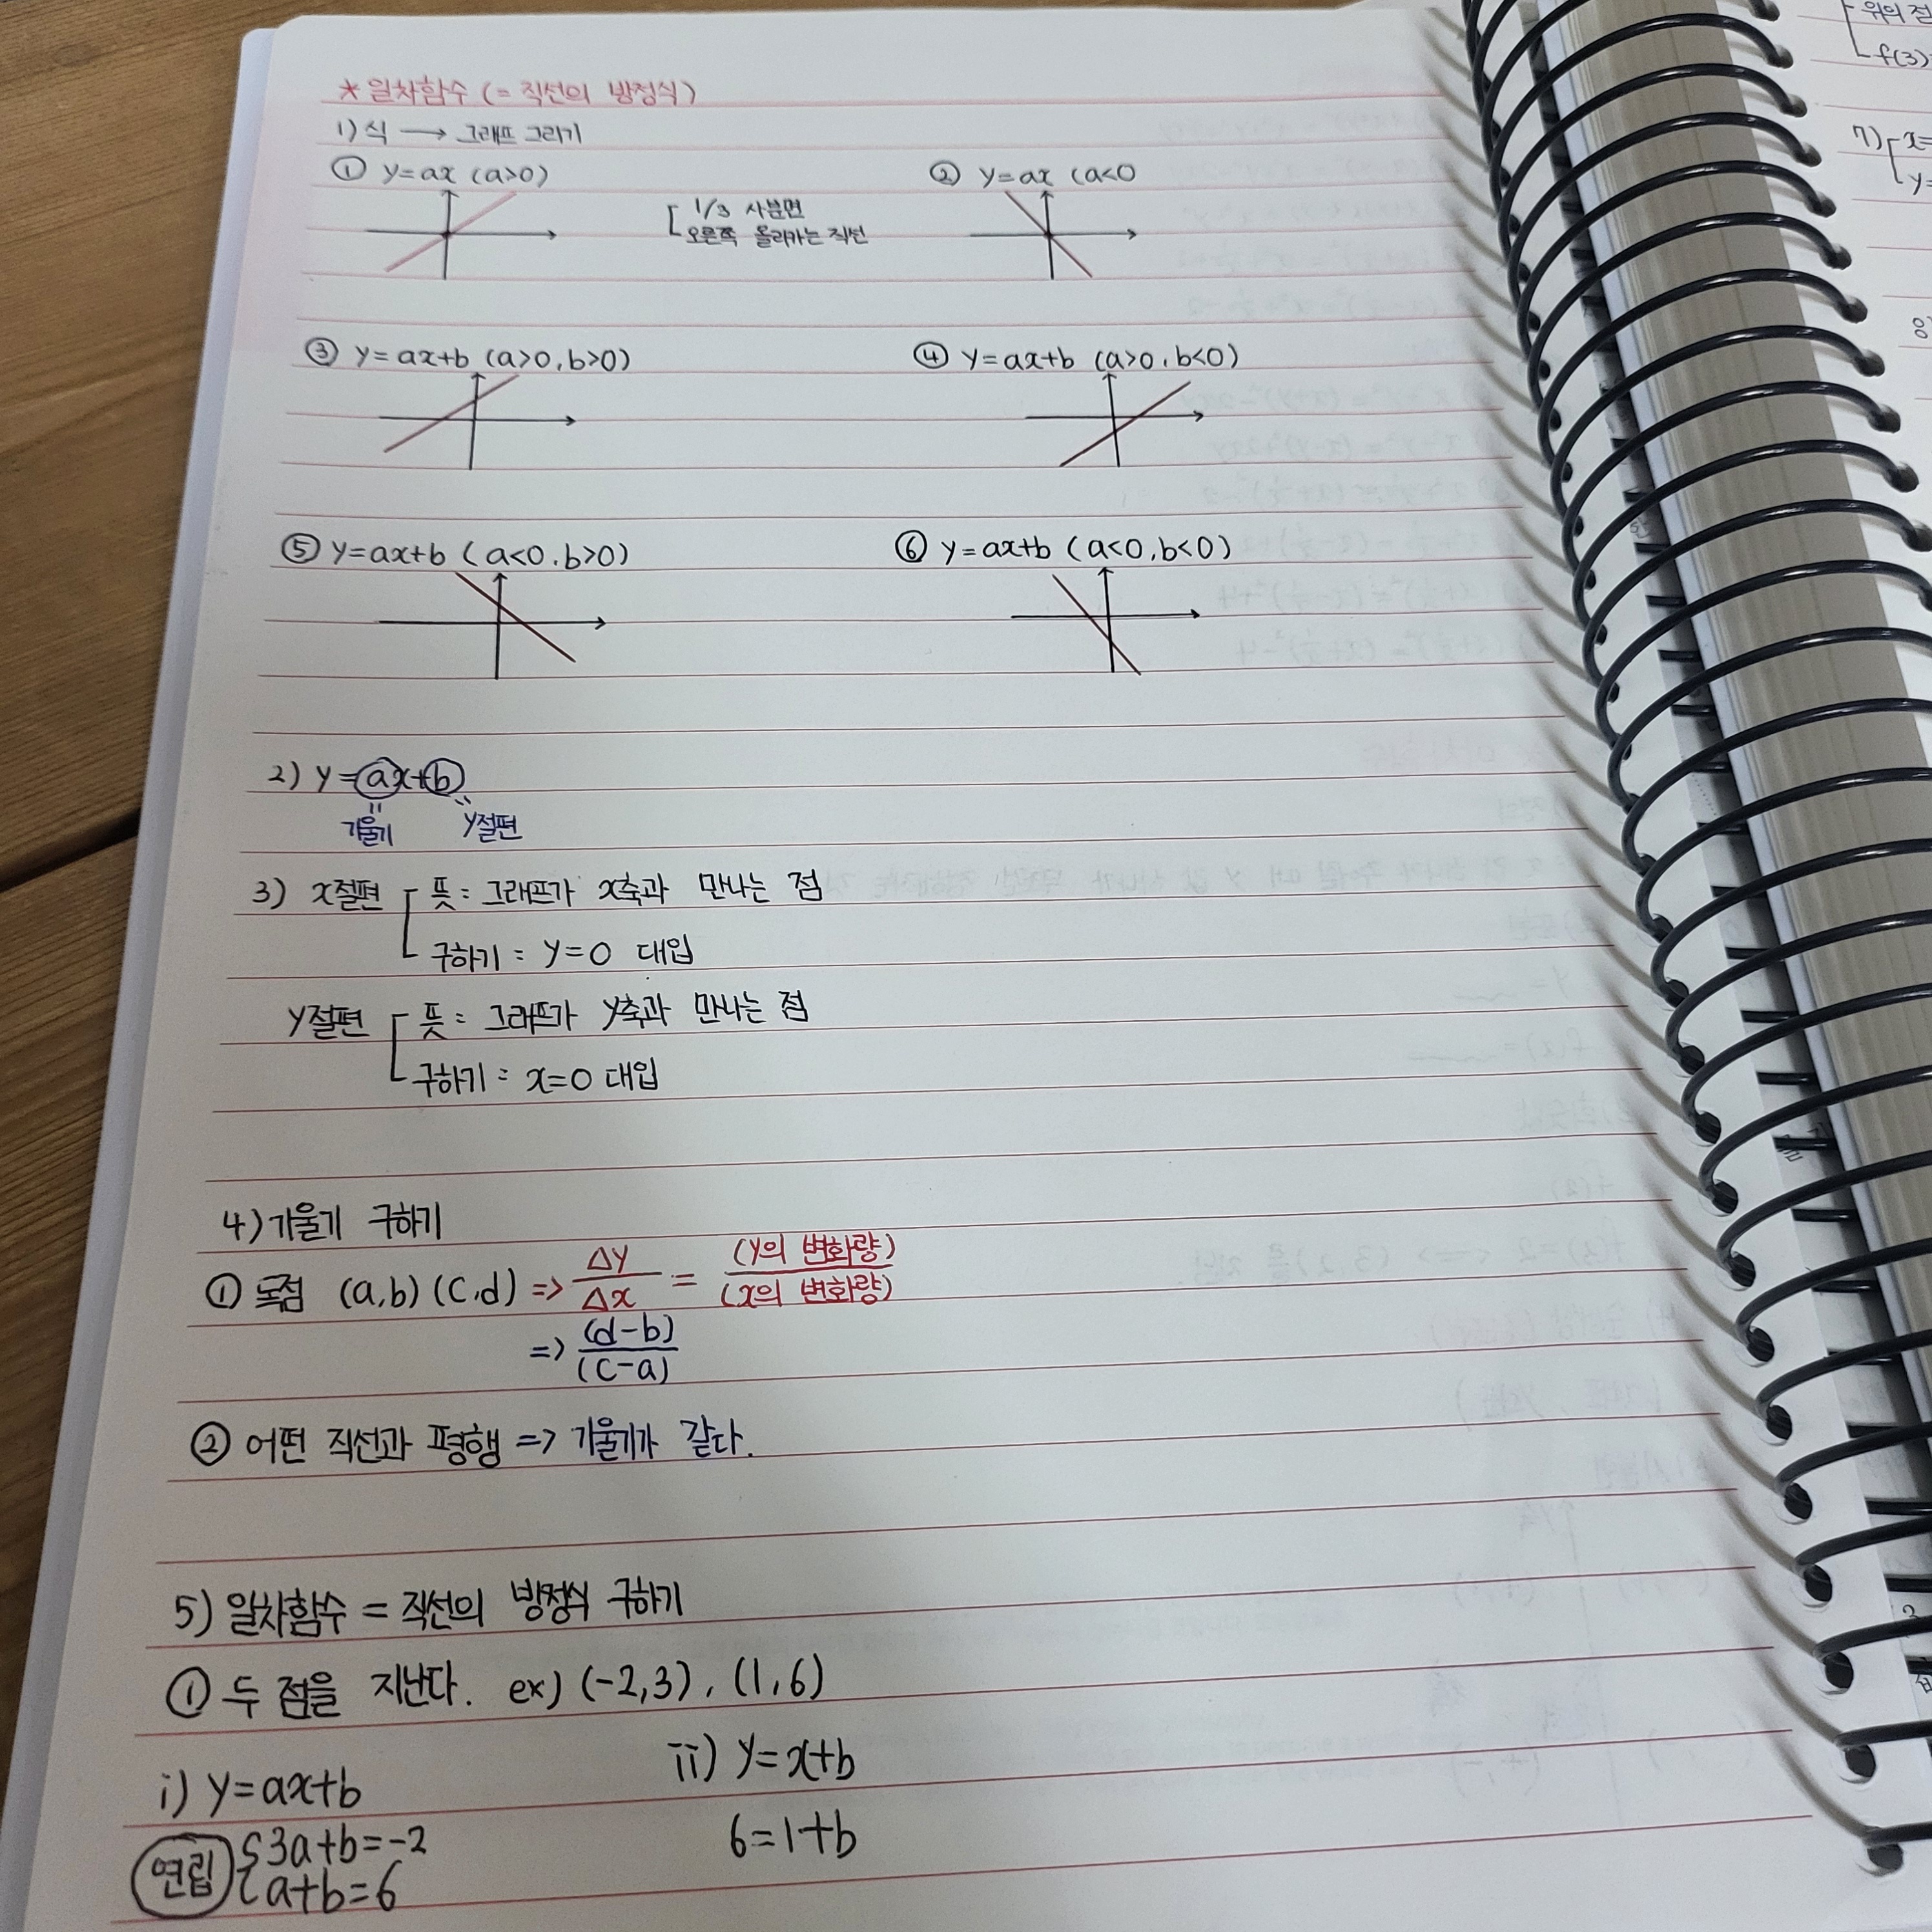 * 일차함수 (= 직선의 방정식)
1) 식 → 그래프 그리기
① y=ax (a>0)
1/3 사분면
오른쪽 올라가는 직선
② y=ax (a<0
③ y=ax+b (a>0, b>0)
④ y=ax+b (a>0, b<0)
⑤ y=ax+b (a<0, b>0)
⑥ y=ax+b (a<0, b<0)
2) y=ax+b
기울기 y절편
3) x절편 뜻: 그래프가 x축과 만나는 점
구하기 : y=0 대입
y절편 뜻: 그래프가 y축과 만나는 점
구하기 : x=0 대입
4) 기울기 구하기
① 두점 (a,b) (c,d) => Δy/Δx = (y의 변화량)/(x의 변화량)
=> (d-b)/(c-a)
② 어떤 직선과 평행 => 기울기가 같다.
5) 일차함수 = 직선의 방정식 구하기
① 두 점을 지난다. ex) (-2,3), (1,6)
i) y=ax+b
연립 { 3a+b=-2
a+b=6
ii) y=x+b
6=1+b
위의 점
f(3)
7) x=
y=